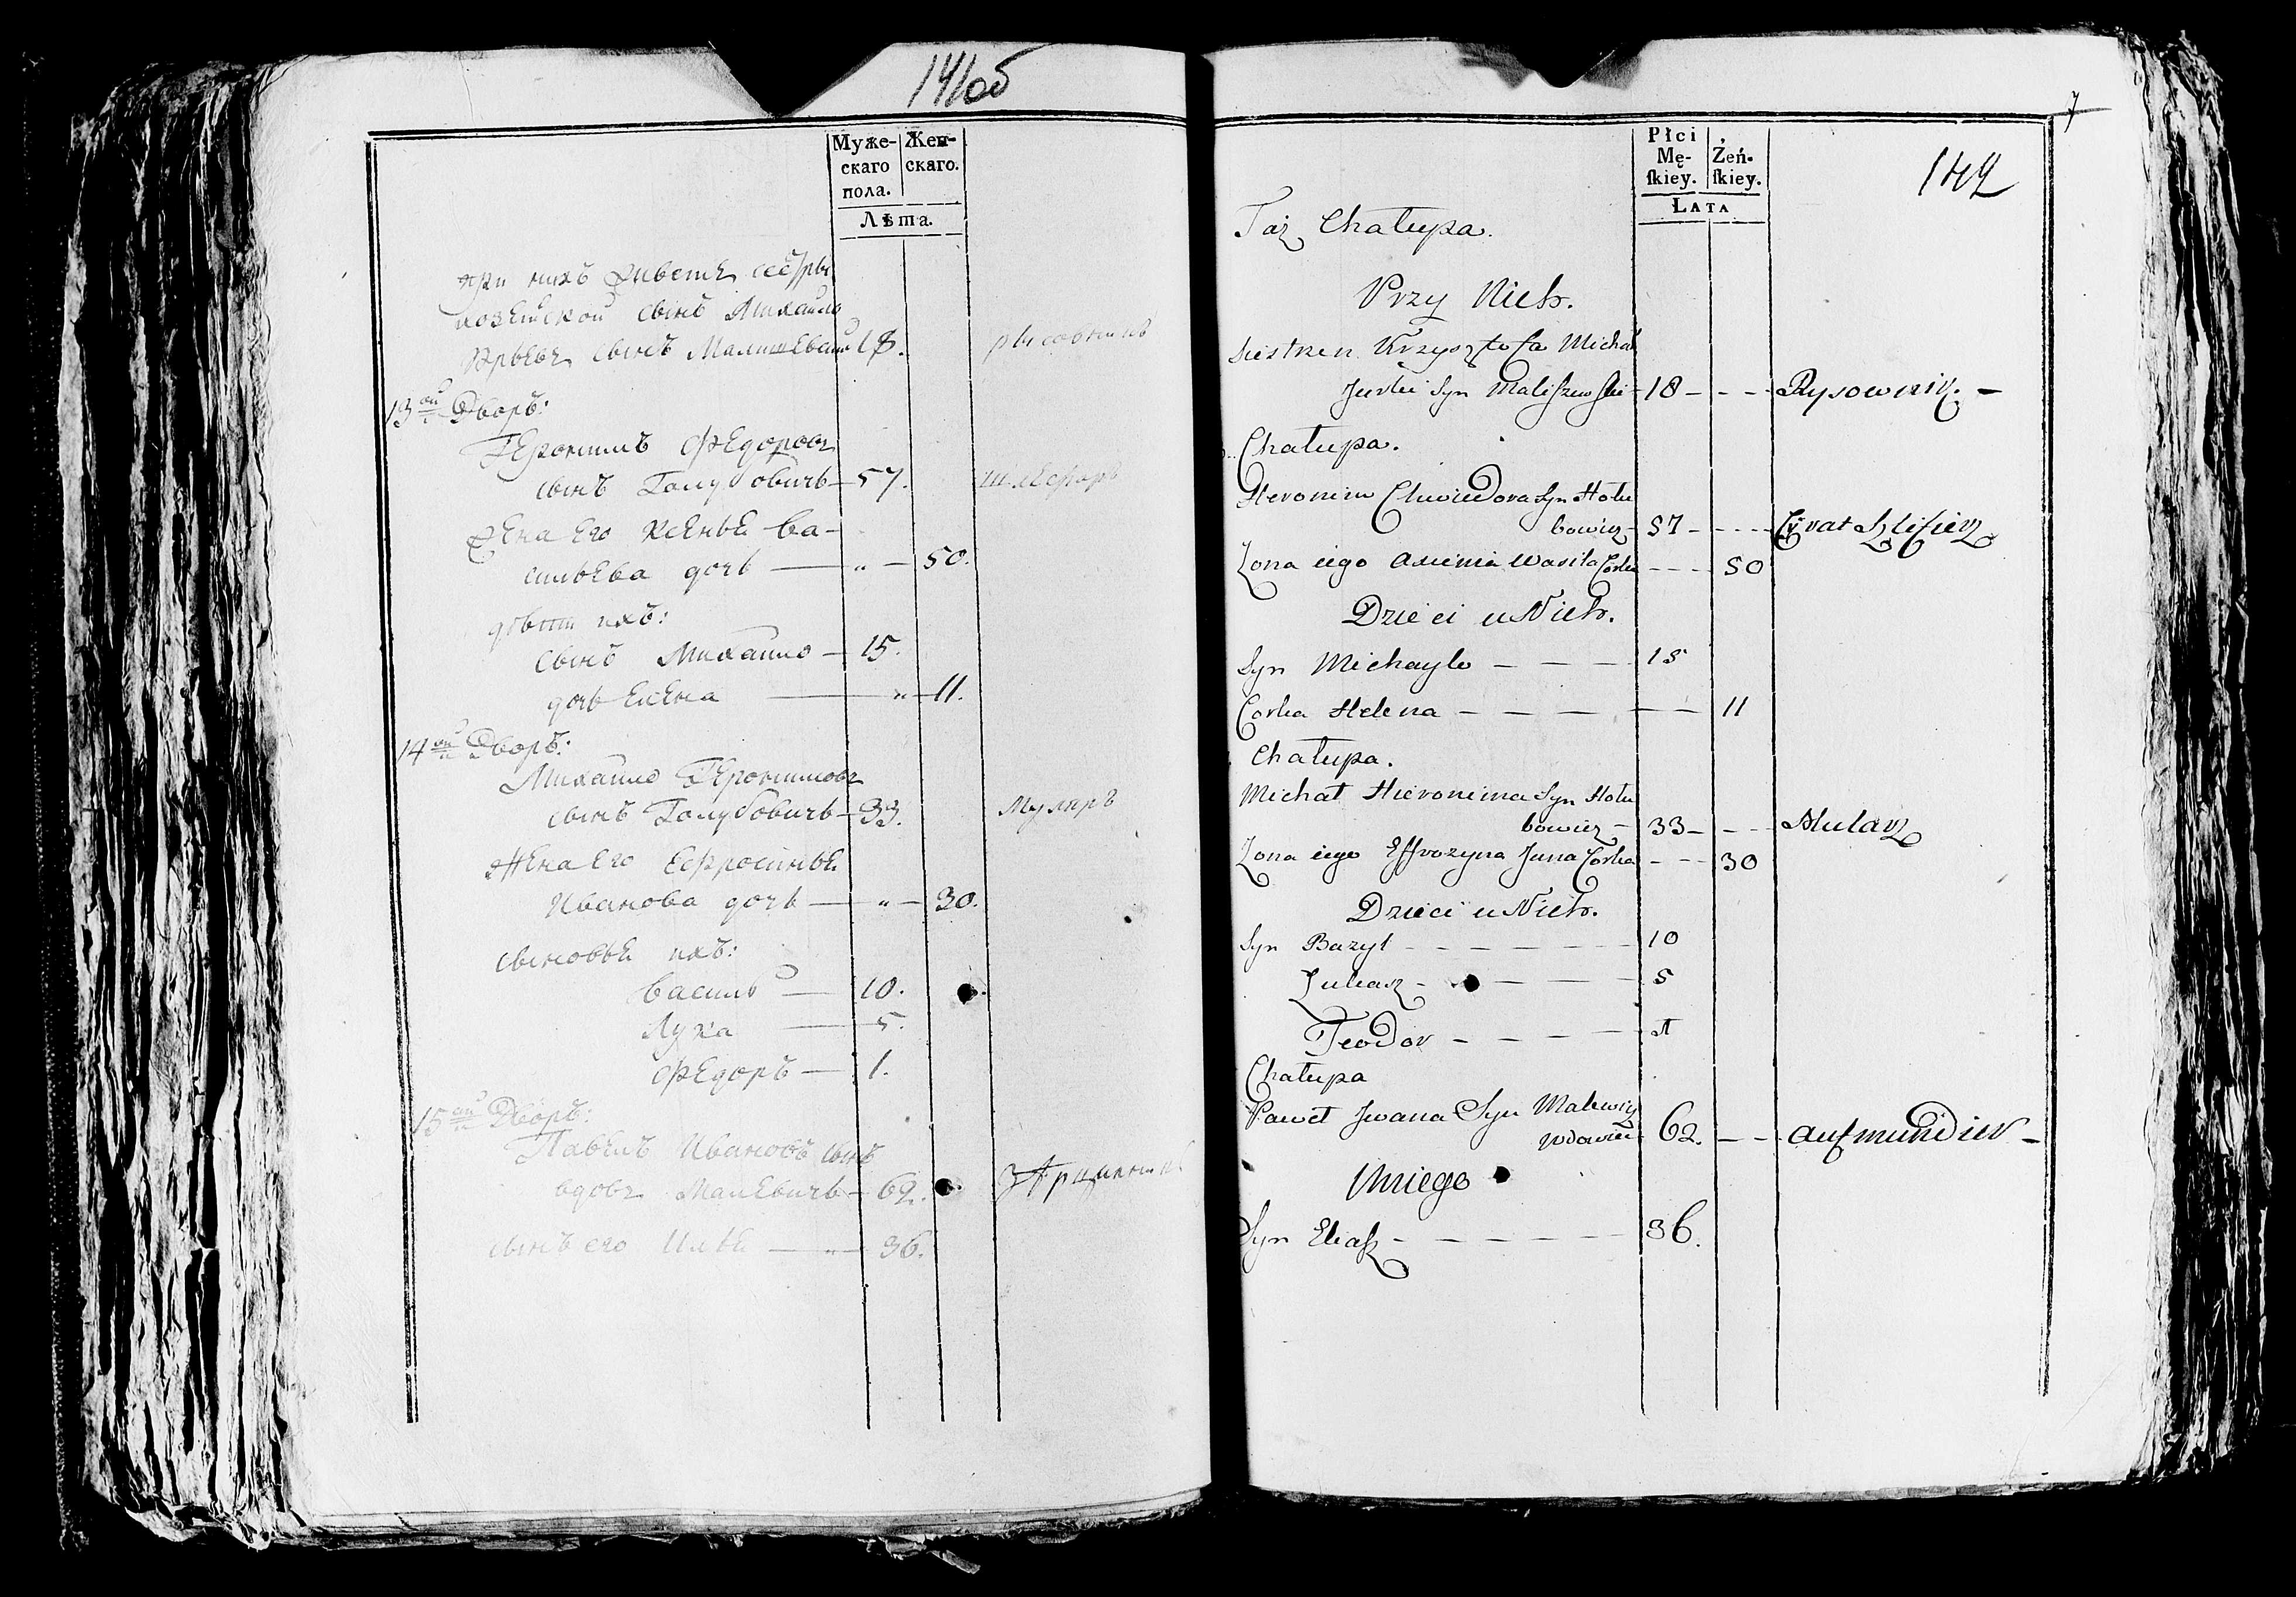 141об
Муже- Жен-
скаго скаго.
пола.
Лѣта.
при нихъ живетъ сестры
хозяйской сынъ Михайло
Юрьевъ сынъ Малишевский 18. рисовникъ
13ой Дворъ:
Геронимъ Федоровъ
сынъ Голубовичъ — 57. шлеферъ
жена его Ксенья Ва-
сильева дочь — " — 50.
дѣти ихъ:
сынъ Михайло — 15.
дочь Елена — " — 11.
14ой Дворъ:
Михайло Геронимовъ
сынъ Голубовичъ — 33. Муляръ
жена его Ефросинья
Иванова дочь — " — 30.
сыновья ихъ:
Василь — 10.
Лука — 5.
Федоръ — 1.
15ой Дворъ:
Павелъ Ивановъ сынъ
вдовъ Малевичъ — 62.
сынъ его Илья — " — 36.
7
Płci
Mę- Żeń-
skiey. skiey.
LATA
142
Taż Chałupa.
Przy Nich.
Siestrzen Krzysztofa Michał
Jurki Syn Maliszewski - 18 - - - Rysownik. -
Chałupa.
Hieronim Chwiedora Syn Hołu
bowicz - 57 - - - - Szlifierz
Zona iego Axienia Wasila Corka - - - 50
Dzieci u Nich.
Syn Michayło - - - 15
Corka Helena - - - - - 11
Chałupa.
Michał Hieronima Syn Hołu
bowicz - 33 - - - Mularz
Zona iego Effrozyna Jana Corka - - - 30
Dzieci u Nich.
Syn Bazyl - - - - - - - 10
Łukasz - - - - 5
Teodor - - - - 1
Chałupa
Paweł Jwana Syn Malewicz
wdowiec 62. - - aufmundier -
U niego
Syn Eliasz - - - - - - 36.